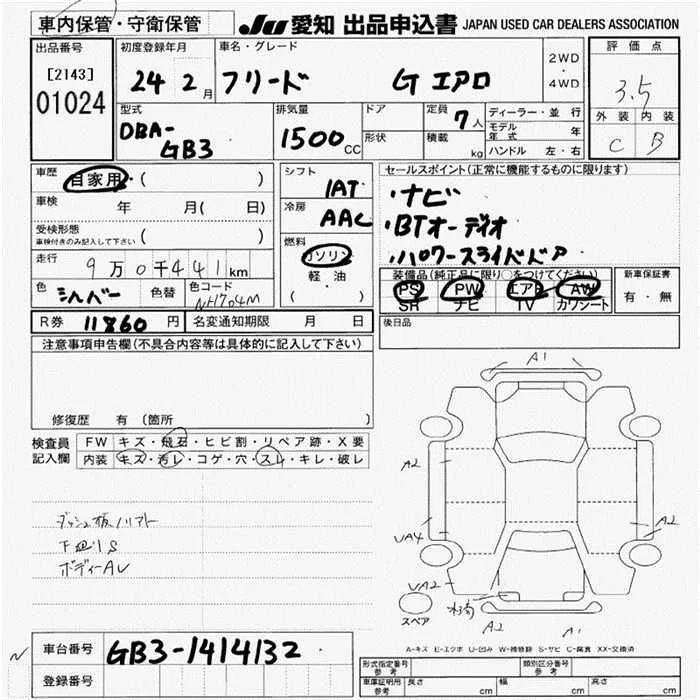 車内保管・守衛保管 JU 愛知 出品申込書 JAPAN USED CAR DEALERS ASSOCIATION
出品番号
[2143]
01024
初度登録年月
24 2月
車名・グレード
フリード G エアロ
2WD
・
4WD
評価点
3.5
外装 内装
C B
型式
DBA-
GB3
排気量
1500 CC
ドア
形状
定員 7人
積載 kg
ディーラー・並行
モデル年式 年
ハンドル 左・右
車歴 自家用・( )
車検 年 月( 日)
受検形態
車検付きのみ記入して下さい ( )
走行 9万0千441km
色 シルバー 色替 色コード NH704M
シフト
IAT
冷房
AAC
燃料
ガソリン
軽・油
( )
セールスポイント(正常に機能するものに限ります)
・ナビ
・BTオーディオ
・パワースライドドア
装備品(純正品に限り○をつけてください)
PS PW エアB AW
SR ナビ TV カワシート
新車保証書
有・無
R券 11860円 名変通知期限 月 日
後日品
注意事項申告欄(不具合内容等は具体的に記入して下さい)
修復歴 有 (箇所 )
検査員
記入欄
FW キズ・飛石・ヒビ割・リペア跡・X要
内装 キズ・汚レ・コゲ・穴・スレ・キレ・破レ
ダッシュ板ノリアト
下廻りS
ボディーAU
A1
A2
UA4
A2
UA2
A2
A1
スペア
A-キズ E-エクボ U-凹み W-補修跡 S-サビ C-腐食 XX-交換済
N
車台番号 GB3-1414132
登録番号
形式指定番号
参考
類別区分番号
参考
車庫証明用
参考
長さ cm 幅 cm 高さ cm